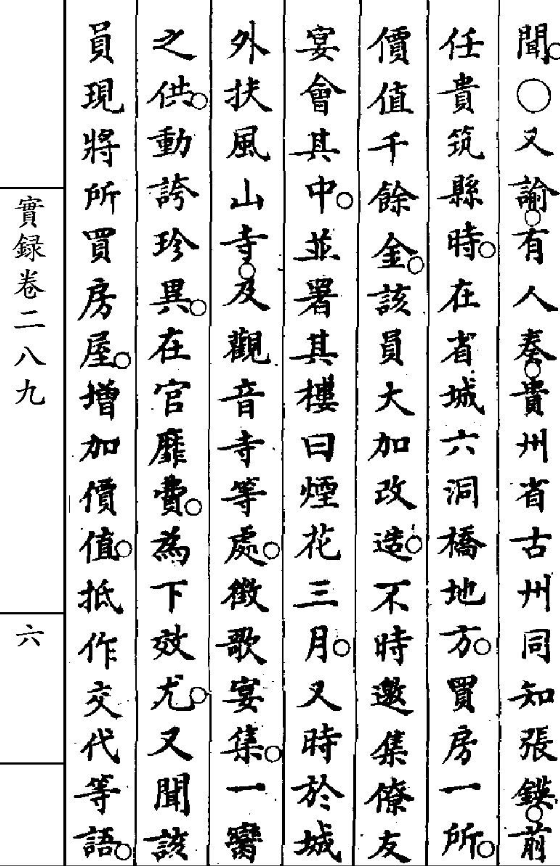 聞○又諭有人奏貴州省古州同知張鍈前
任貴筑縣時在省城六洞橋地方買房一所
價值千餘金該員大加改造不時邀集僚友
宴會其中並署其樓曰煙花三月又時於城
外扶風山寺及觀音寺等處徵歌宴集一臠
之供動誇珍異在官靡費為下效尤又聞該
員現將所買房屋增加價值抵作交代等語
實録卷二八九
六